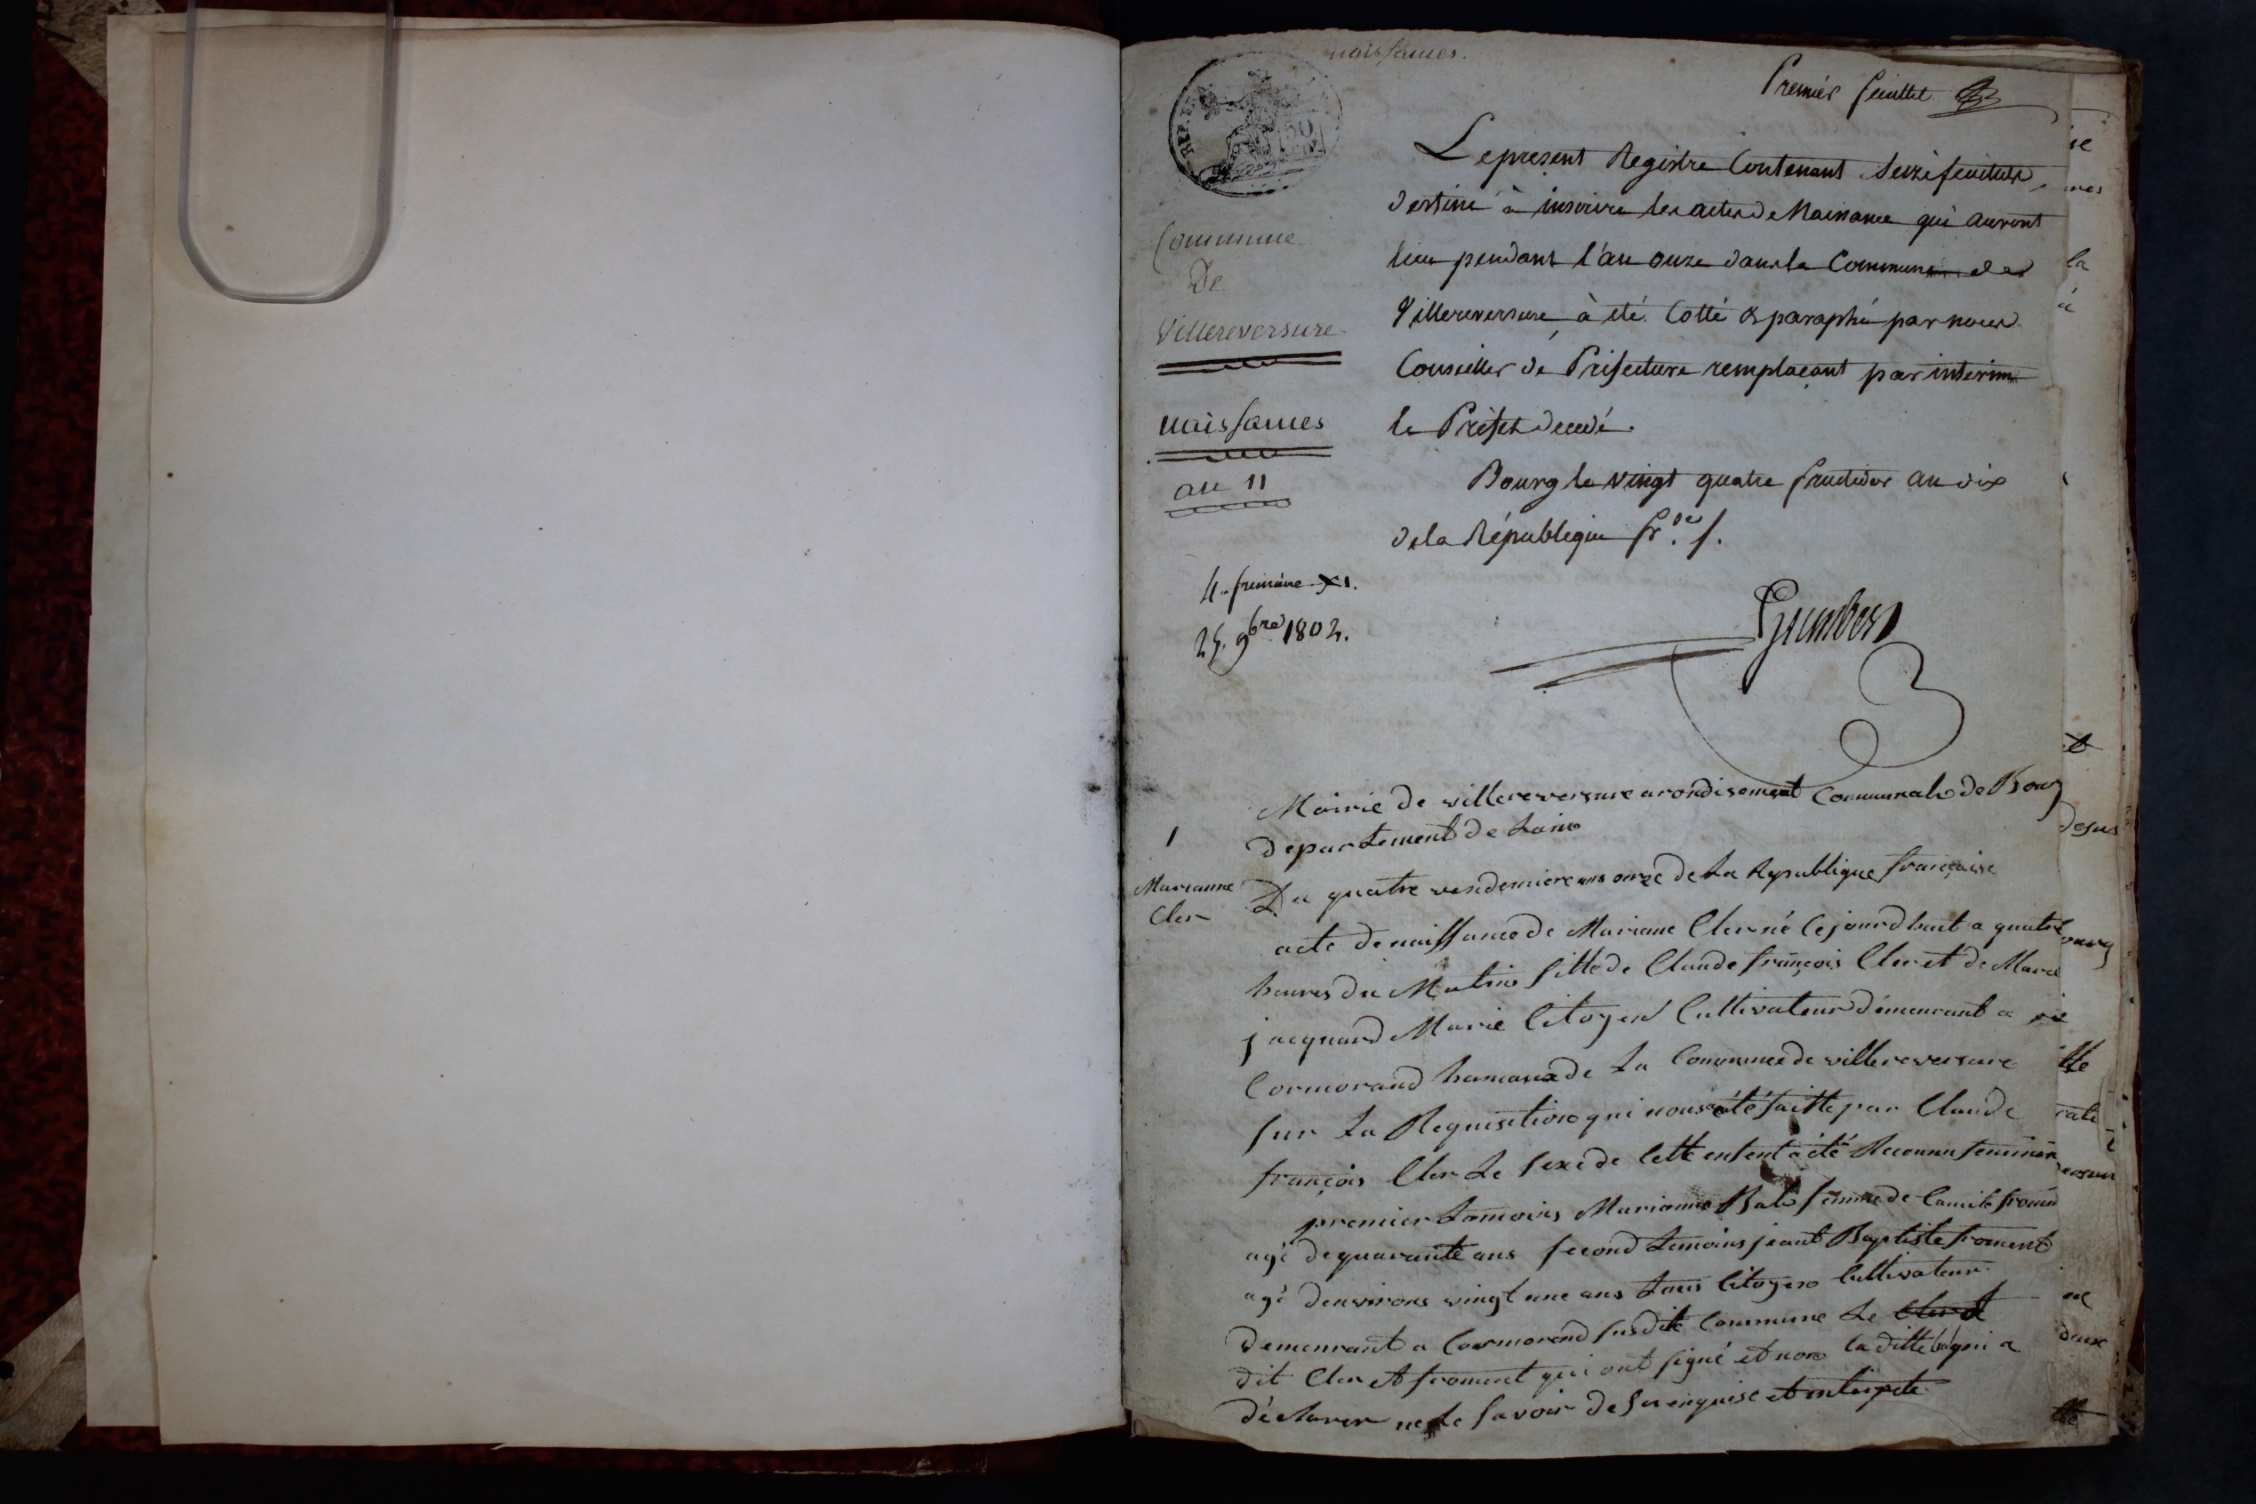 naissances.
Premier feuillet
REP. F
50
Le present Registre Contenant Seize feuillets
destiné à inscrire les actes de Naissance qui auront
lieu pendant l'an onze dans la Commune de
Villereversure à été Cotté & paraphé par nous
Conseiller de Préfecture remplaçant par interim
le Préfet decedé.
Bourg le vingt quatre fructidor an dix
de la République
Commune
De
Villereversure
naissances
an 11
4. frimaire XI.
25. 9bre 1802.
Mairie de villereversure arondisement Communale de Bourg
departement de Lain
1
Marianne
Cler
Du quatre vendemiere ans onze de La Republique française
acte de naissance de Mariane Cler né Cejourdhuit a quatre
heures du Matin fille de Claude françois Cler et de Marie
jacquand Marie Citoyen Cultivateur demeurant a
Cormorand hamaux de La Commune de villereversure
sur La Requisition qui nous a été faitte par Claude
françois Cler Le sexe de Cette enfent a été Reconnu feminin
premier temoins Marianne Bal femme de Camile
agé de quarante ans second temoins jeant Baptiste froment
agé denvirons vingt une ans tous Citoyen Cultivateur
demeurant a Cormorend susdite Commune Le
dit Cler et froment qui ont signé et non la ditte qui a
déclarer ne Le savoir de Se enquise et